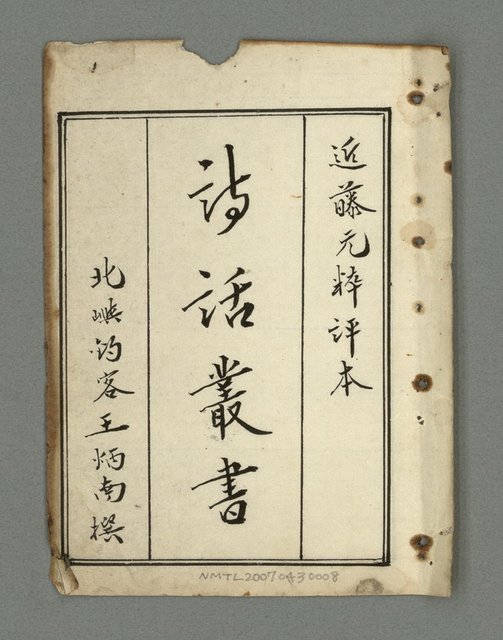 近藤元粹評本
詩話叢書
北嶼釣客王炳南撰
NMTL20070430008